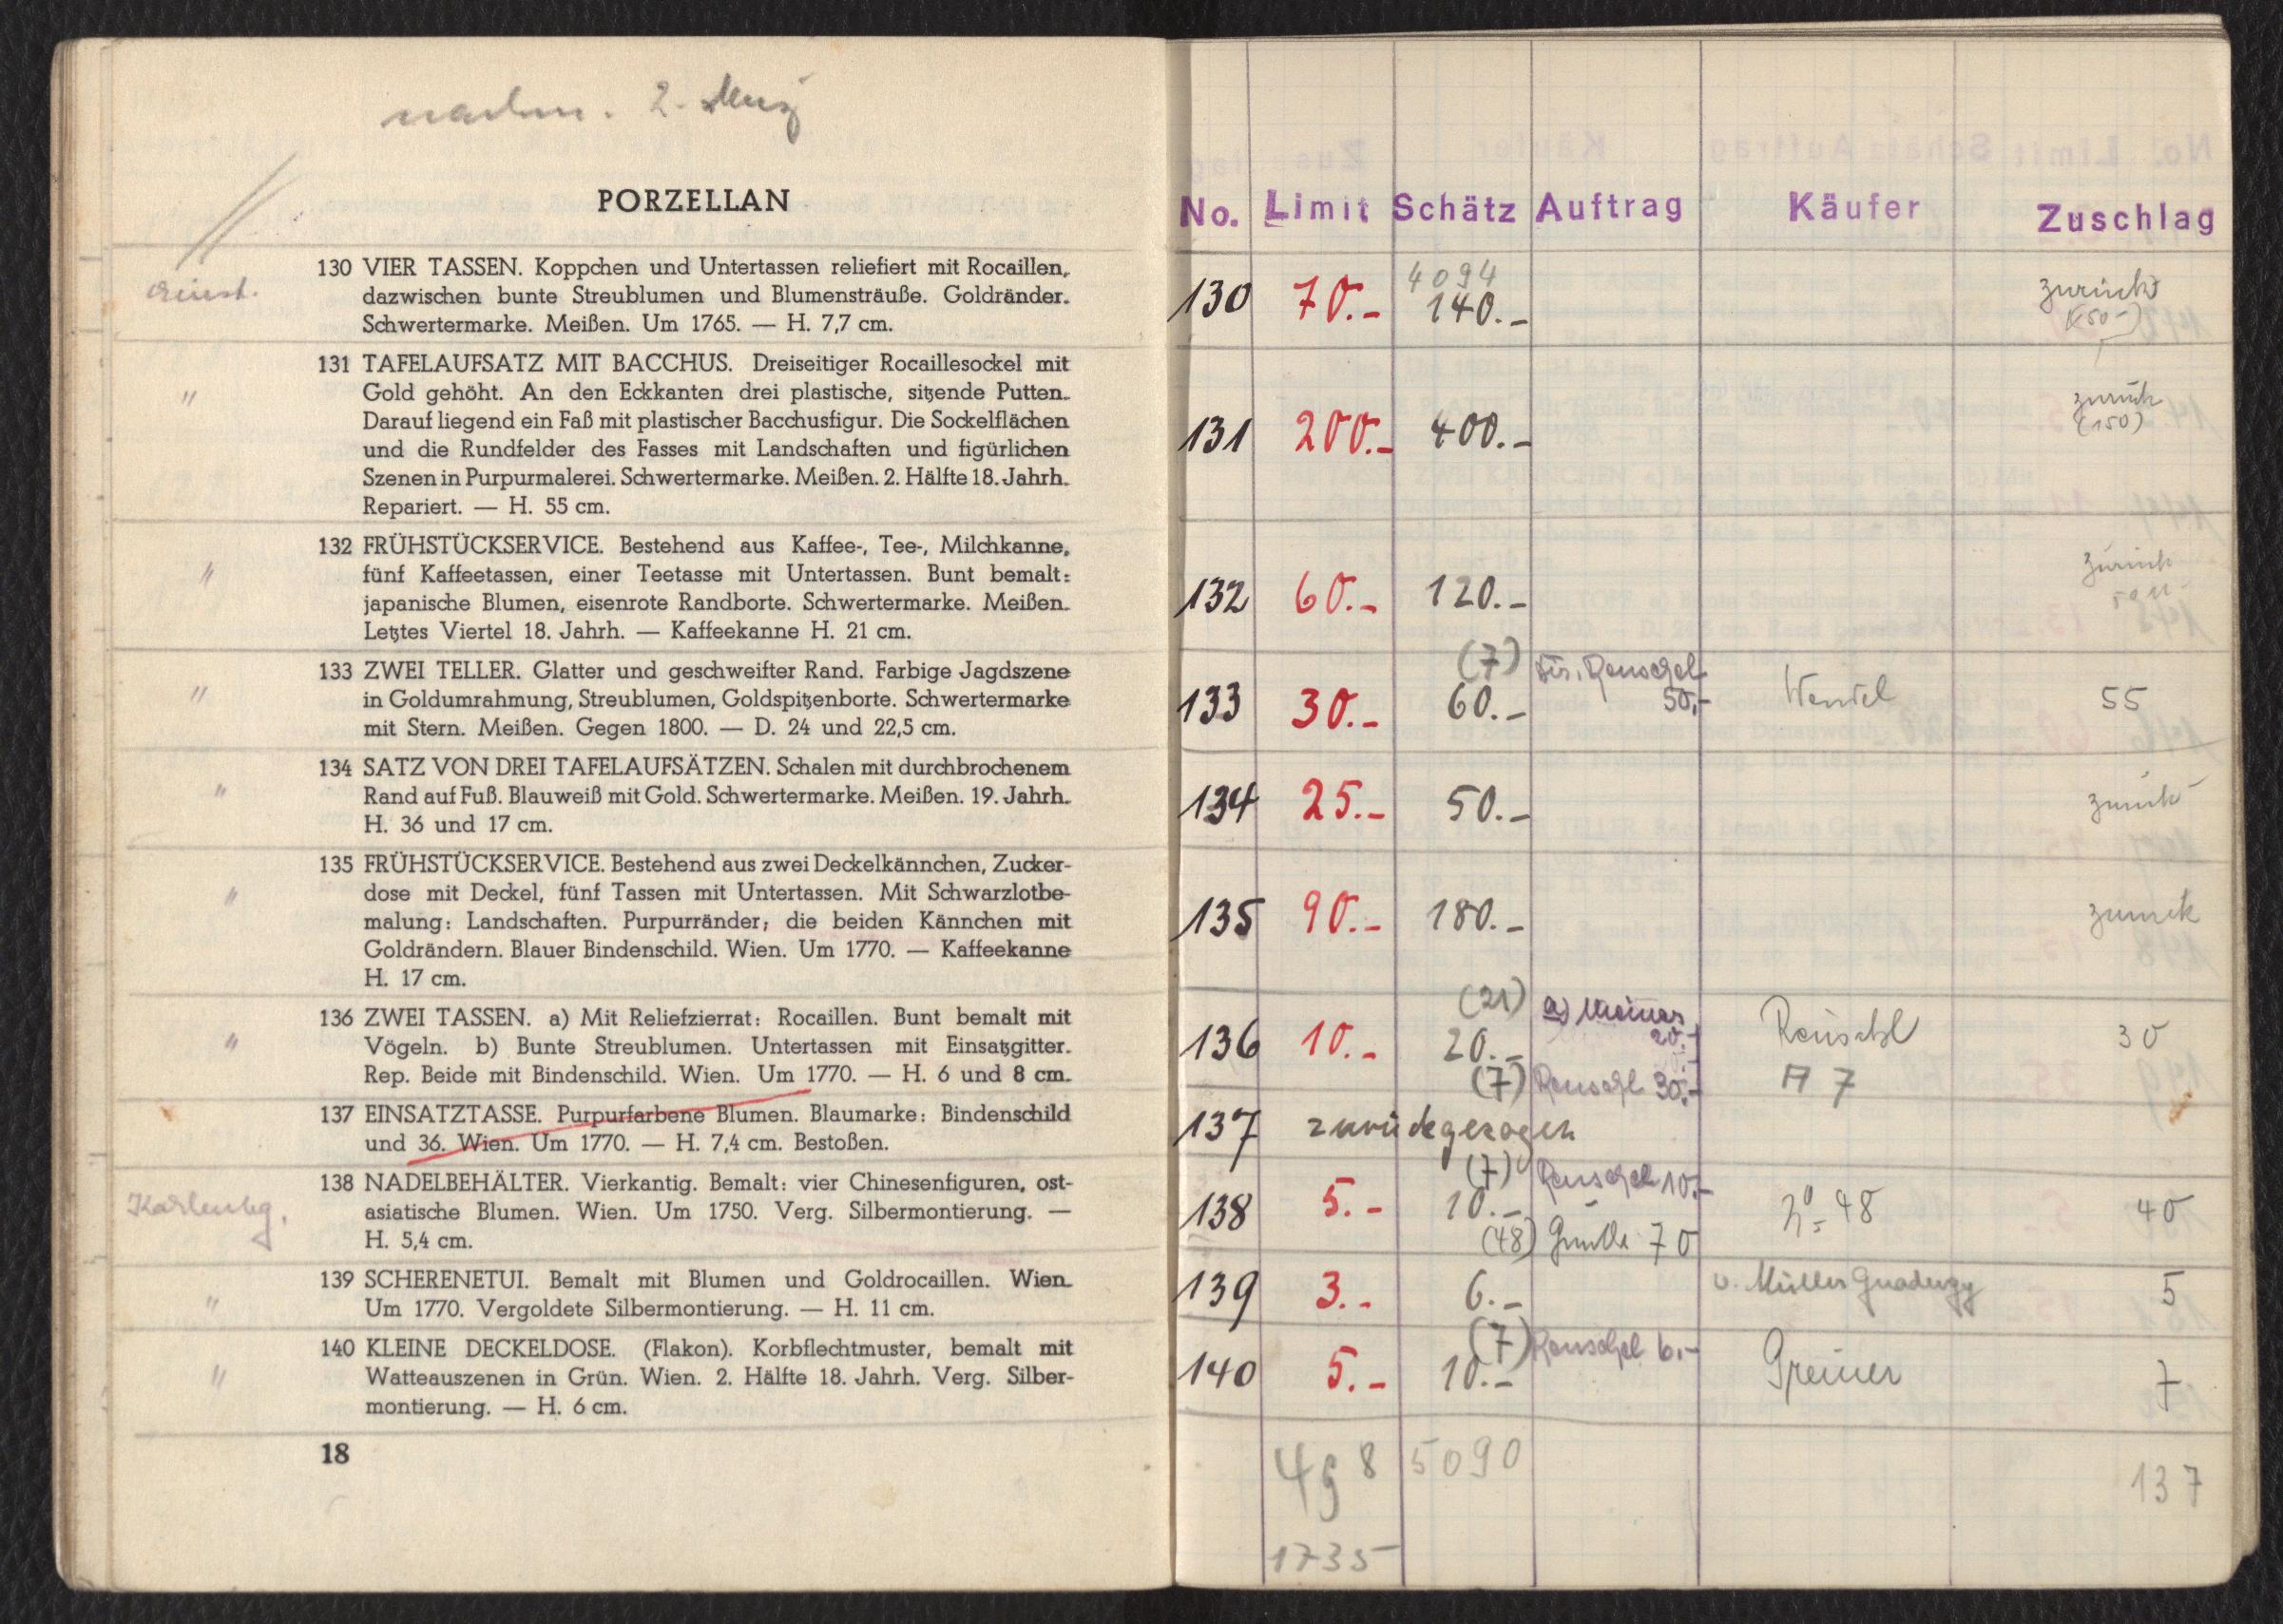 nachm. 2. März
PORZELLAN
130 VIER TASSEN. Koppchen und Untertassen reliefiert mit Rocaillen,
dazwischen bunte Streublumen und Blumensträuße. Goldränder.
Schwertermarke. Meißen. Um 1765. — H. 7,7 cm.
131 TAFELAUFSATZ MIT BACCHUS. Dreiseitiger Rocaillesockel mit
"
Gold gehöht. An den Eckkanten drei plastische, sitzende Putten.
Darauf liegend ein Faß mit plastischer Bacchusfigur. Die Sockelflächen
und die Rundfelder des Fasses mit Landschaften und figürlichen
Szenen in Purpurmalerei. Schwertermarke. Meißen. 2. Hälfte 18. Jahrh.
Repariert. — H. 55 cm.
132 FRÜHSTÜCKSERVICE. Bestehend aus Kaffee-, Tee-, Milchkanne,
"
fünf Kaffeetassen, einer Teetasse mit Untertassen. Bunt bemalt:
japanische Blumen, eisenrote Randborte. Schwertermarke. Meißen.
Letztes Viertel 18. Jahrh. — Kaffeekanne H. 21 cm.
133 ZWEI TELLER. Glatter und geschweifter Rand. Farbige Jagdszene
"
in Goldumrahmung, Streublumen, Goldspitzenborte. Schwertermarke
mit Stern. Meißen. Gegen 1800. — D. 24 und 22,5 cm.
134 SATZ VON DREI TAFELAUFSÄTZEN. Schalen mit durchbrochenem
"
Rand auf Fuß. Blauweiß mit Gold. Schwertermarke. Meißen. 19. Jahrh.
H. 36 und 17 cm.
135 FRÜHSTÜCKSERVICE. Bestehend aus zwei Deckelkännchen, Zucker-
"
dose mit Deckel, fünf Tassen mit Untertassen. Mit Schwarzlotbe-
malung: Landschaften. Purpurränder; die beiden Kännchen mit
Goldrändern. Blauer Bindenschild. Wien. Um 1770. — Kaffeekanne
H. 17 cm.
136 ZWEI TASSEN. a) Mit Reliefzierrat: Rocaillen. Bunt bemalt mit
"
Vögeln. b) Bunte Streublumen. Untertassen mit Einsatzgitter.
Rep. Beide mit Bindenschild. Wien. Um 1770. — H. 6 und 8 cm.
137 EINSATZTASSE. Purpurfarbene Blumen. Blaumarke: Bindenschild
und 36. Wien. Um 1770. — H. 7,4 cm. Bestoßen.
138 NADELBEHÄLTER. Vierkantig. Bemalt: vier Chinesenfiguren, ost-
asiatische Blumen. Wien. Um 1750. Verg. Silbermontierung. —
H. 5,4 cm.
139 SCHERENETUI. Bemalt mit Blumen und Goldrocaillen. Wien.
"
Um 1770. Vergoldete Silbermontierung. — H. 11 cm.
140 KLEINE DECKELDOSE. (Flakon). Korbflechtmuster, bemalt mit
"
Watteauszenen in Grün. Wien. 2. Hälfte 18. Jahrh. Verg. Silber-
montierung. — H. 6 cm.
18
No. Limit Schätz Auftrag Käufer Zuschlag
4094
130 70.- 140.- zurück
(50-)
131 200.- 400.- zurück
(150)
132 60.- 120.- zurück
(7)
133 30.- 60.- 50.- 55
134 25.- 50.- zurück
135 90.- 180.- zurück
(21) a)
20.-
136 10.- 20.- 30
(7) 30.- 7
137 zurückgezogen
(7) 10.-
138 5.- 10.- No 48 40
(48) 70
139 3.- 6.- v. Müller 5
(7) 6.-
140 5.- 10.- Greiner 7
498 5090 137
1735